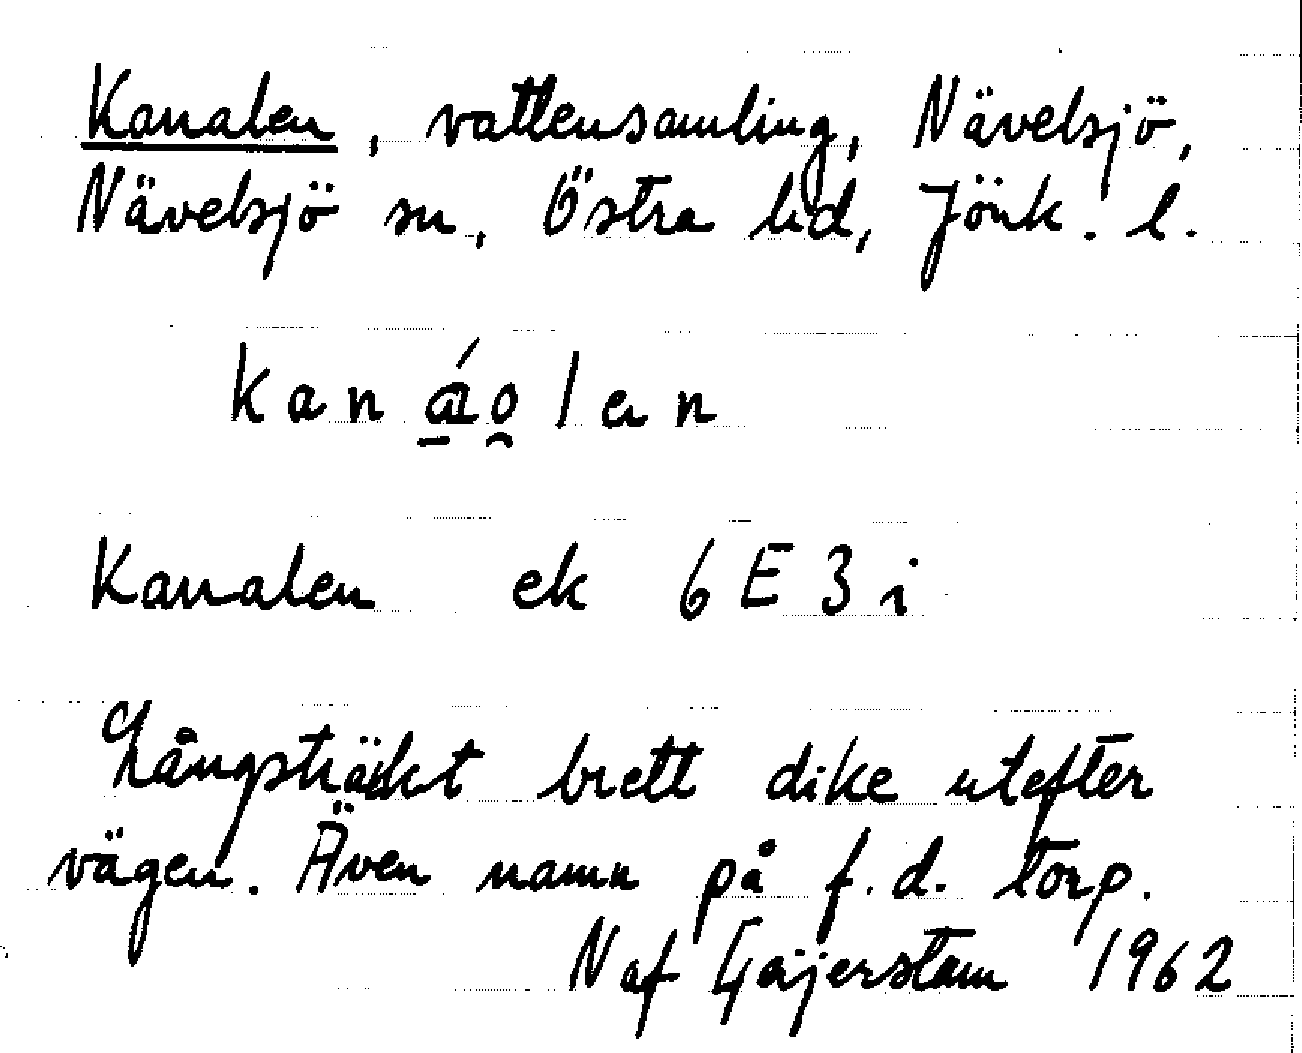 Kanalen, vattensamling, Nävelsjö,
Nävelsjö sn, Östra hd, Jönk. l.
kanáo̯len
Kanalen ek 6E3i
Långsträckt brett dike utefter
vägen. Även namn på f.d. torp.
N af Geijerstam 1962